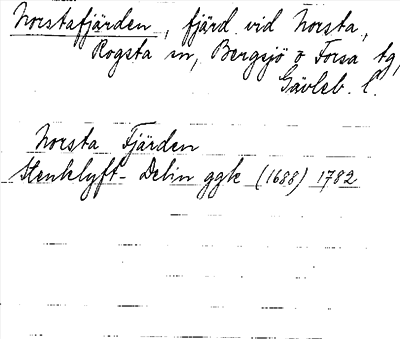 Norstafjärden, fjärd vid Norsta,
Rogsta sn, Bergsjö o Forsa tg,
Gävleb. l.
Norsta Fjärden
Stenklyft - Delin ggk (1688) 1782